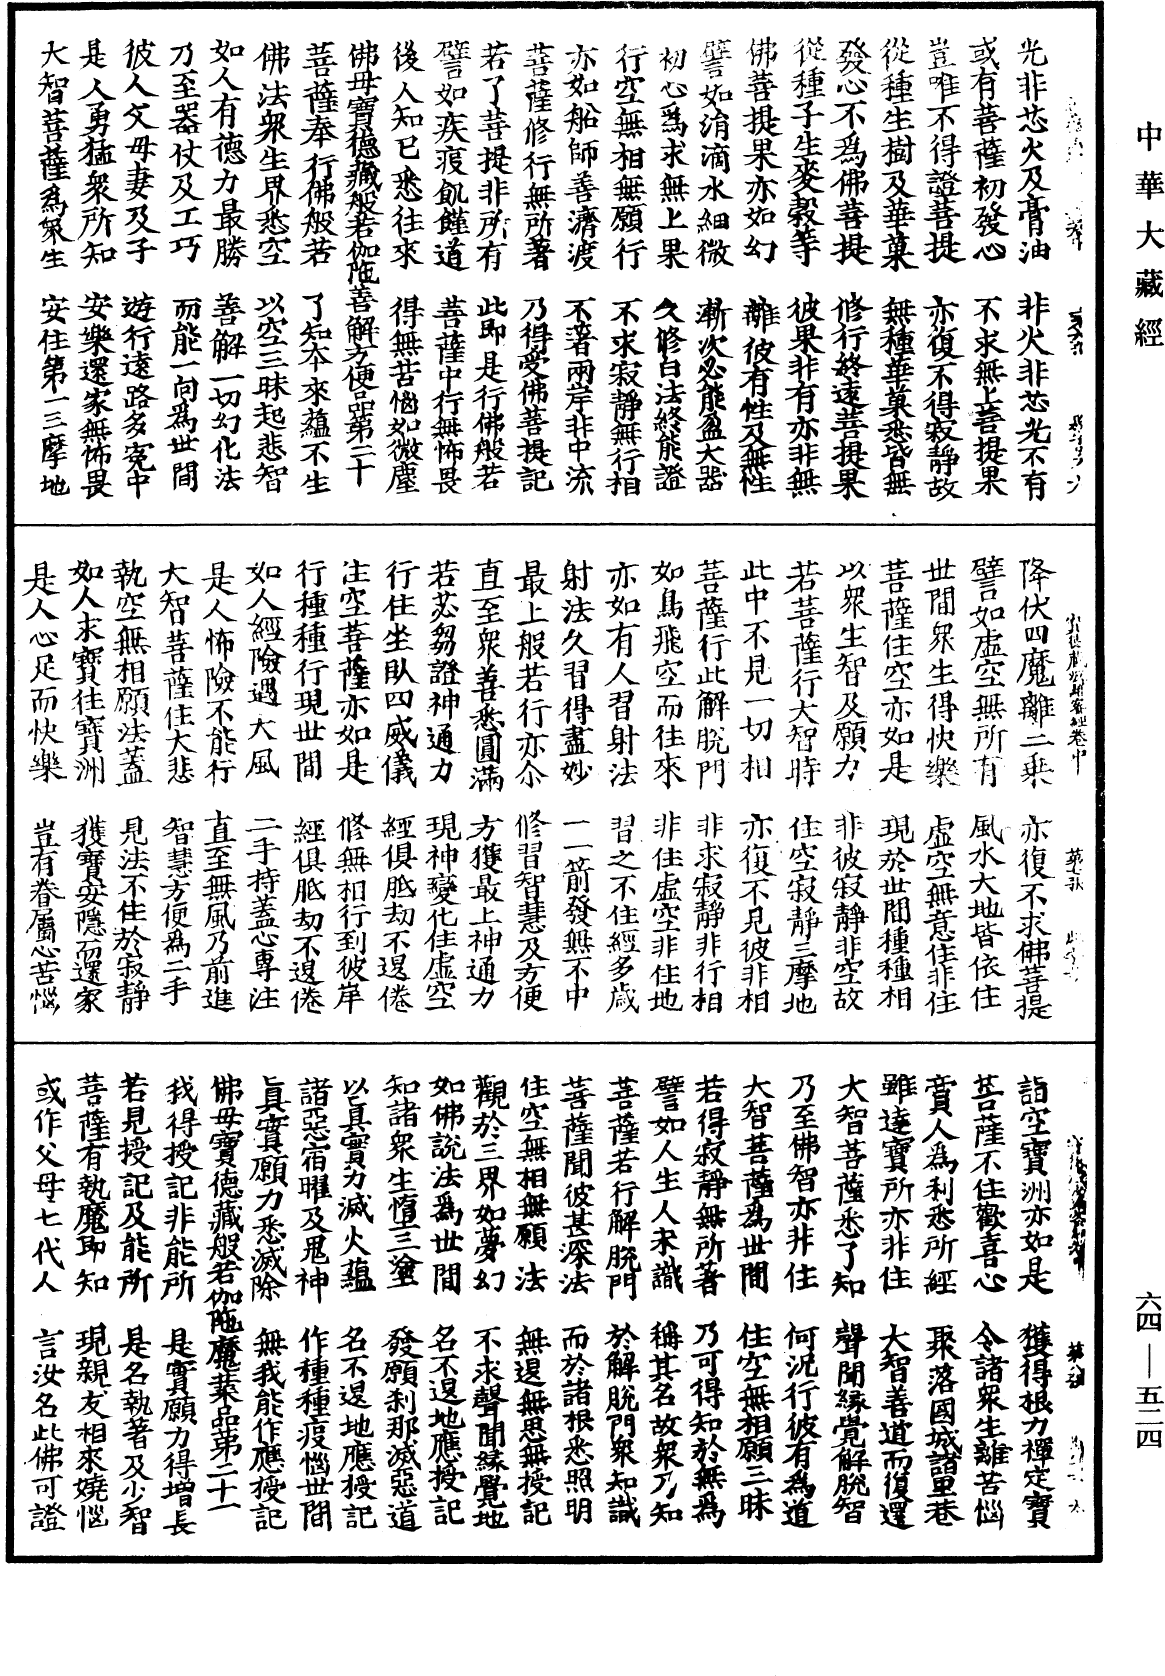 中華大藏經
光非芯火及膏油　非火非芯光不有
或有菩薩初發心　不求無上菩提果
豈唯不得證菩提　亦復不得寂靜故
從種生樹及華菓　無種華菓悉皆無
發心不為佛菩提　修行終遠菩提果
從種子生麥穀等　彼果非有亦非無
佛菩提果亦如幻　離彼有性及無性
譬如涓滴水細微　漸次必能盈大器
初心為求無上果　久修白法終能證
行空無相無願行　不求寂靜無行相
亦如船師善濟渡　不著兩岸非中流
菩薩修行無所著　乃得受佛菩提記
若了菩提非所有　此即是行佛般若
譬如疾疫飢饉道　菩薩中行無怖畏
後人知已悉往來　得無苦惱如微塵
佛母寶德藏般若伽陁善解方便品第二十
菩薩奉行佛般若　了知本來蘊不生
佛法衆生界悉空　以空三昧起悲智
如人有德力最勝　善解一切幻化法
乃至器仗及工巧　而能一向為世間
彼人父母妻及子　遊行遠路多寃中
是人勇猛衆所知　安樂還家無怖畏
大智菩薩為衆生　安住第一三摩地
寶德藏般若經卷中
降伏四魔離二乘　亦復不求佛菩提
譬如虛空無所有　風水大地皆依住
世間衆生得快樂　虛空無意住非住
菩薩住空亦如是　現於世間種種相
以衆生智及願力　非彼寂靜非空故
若菩薩行大智時　住空寂靜三摩地
此中不見一切相　亦復不見彼非相
菩薩行此解脫門　非求寂靜非行相
如鳥飛空而往來　非住虛空非住地
亦如有人習射法　習之不住經多歲
射法久習得盡妙　一一箭發無不中
最上般若行亦尒　修習智慧及方便
直至衆善悉圓滿　方獲最上神通力
若苾芻證神通力　現神變化住虛空
行住坐臥四威儀　經俱胝劫不退倦
住空菩薩亦如是　修無相行到彼岸
行種種行現世間　經俱胝劫不退倦
如人經險遇大風　二手持蓋心專注
是人怖險不能行　直至無風乃前進
大智菩薩住大悲　智慧方便為二手
執空無相願法蓋　見法不住於寂靜
如人求寶往寶洲　獲寶安隱而還家
是人心足而快樂　豈有眷屬心苦惱
詣空寶洲亦如是　獲得根力禪定寶
菩薩不住歡喜心　令諸衆生離苦惱
賣人為利悉所經　聚落國城諸里巷
雖達寶所亦非住　大智善道而復還
大智菩薩悉了知　聲聞緣覺解脫智
乃至佛智亦非住　何況行彼有為道
大智菩薩為世間　住空無相願三昧
若得寂靜無所著　乃可得知於無為
譬如人生人未識　稱其名故衆乃知
菩薩若行解脫門　於解脫門衆知識
菩薩聞彼甚深法　而於諸根悉照明
住空無相無願法　無退無思無授記
觀於三界如夢幻　不求聲聞緣覺地
如佛說法為世間　名不退地應授記
知諸衆生墮三塗　發願刹那滅惡道
以真實力滅火蘊　名不退地應授記
諸惡宿曜及鬼神　作種種疫惱世間
真實願力悉滅除　無我能作應授記
佛母寶德藏般若伽陁魔業品第二十一
我得授記非能所　是實願力得增長
若見授記及能所　是名執著及少智
菩薩有執魔即知　現親友相來嬈惱
或作父母七代人　言汝名此佛可證
六四—五二四